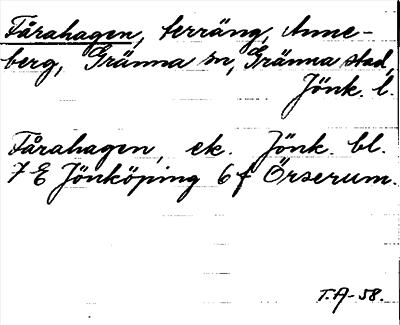 Fårahagen, terräng, Anne-
berg, Gränna sn, Gränna stad,
Jönk. l.
Fårahagen, ek. Jönk. bl.
7 E Jönköping 6 f Örserum.
T.A-58.